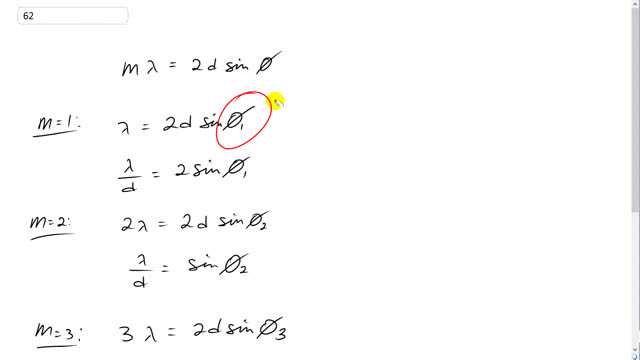 62
m λ = 2d sin ∅
m=1: λ = 2d sin ∅₁
λ/d = 2 sin ∅₁
m=2: 2λ = 2d sin ∅₂
λ/d = sin ∅₂
m=3: 3 λ = 2d sin ∅₃